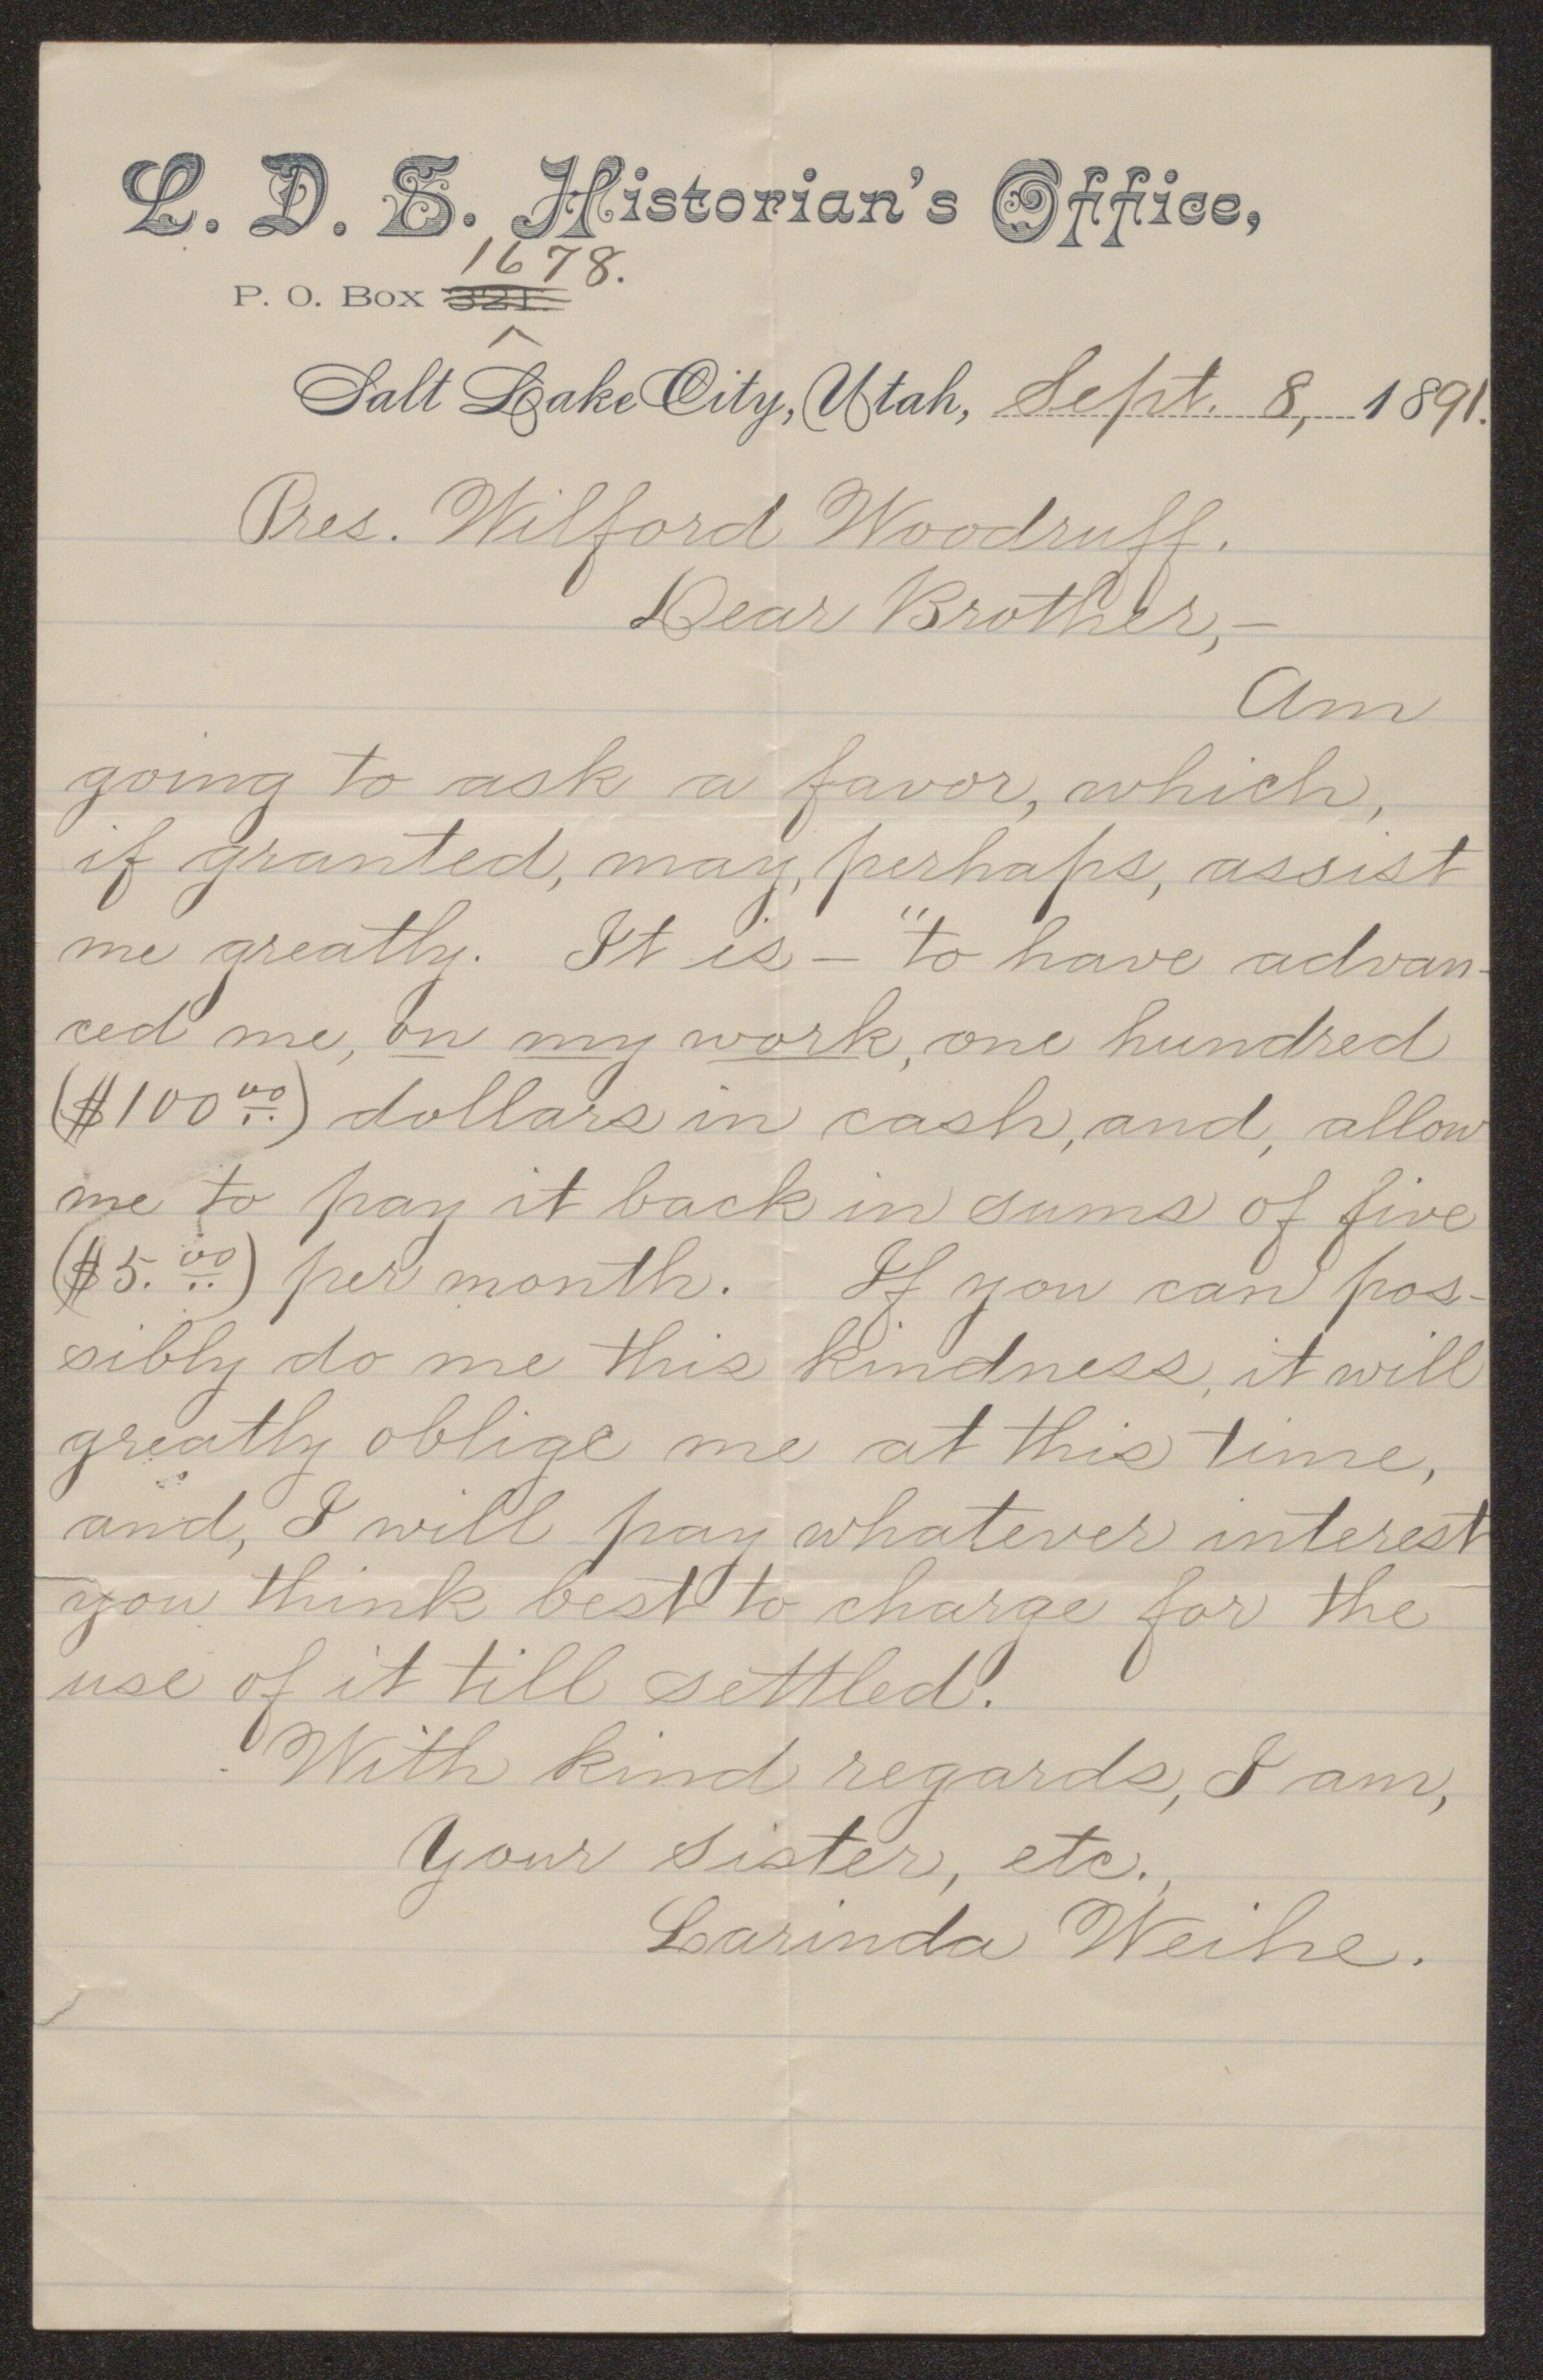 L. D. S. Historian's Office,
1678.
P. O. Box 321.
^
Salt Lake City, Utah, Sept. 8, 1891.
Pres. Wilford Woodruff.
Dear Brother,—
Am
going to ask a favor, which,
if granted, may, perhaps, assist
me greatly. It is — "to have advan-
ced me, on my work, one hundred
($100.00) dollars in cash, and, allow
me to pay it back in sums of five
($5.00) per month. If you can pos-
sibly do me this kindness, it will
greatly oblige me at this time,
and, I will pay whatever interest
you think best to charge for the
use of it till settled.
With kind regards, I am,
Your sister, etc.,
Larinda Weihe.